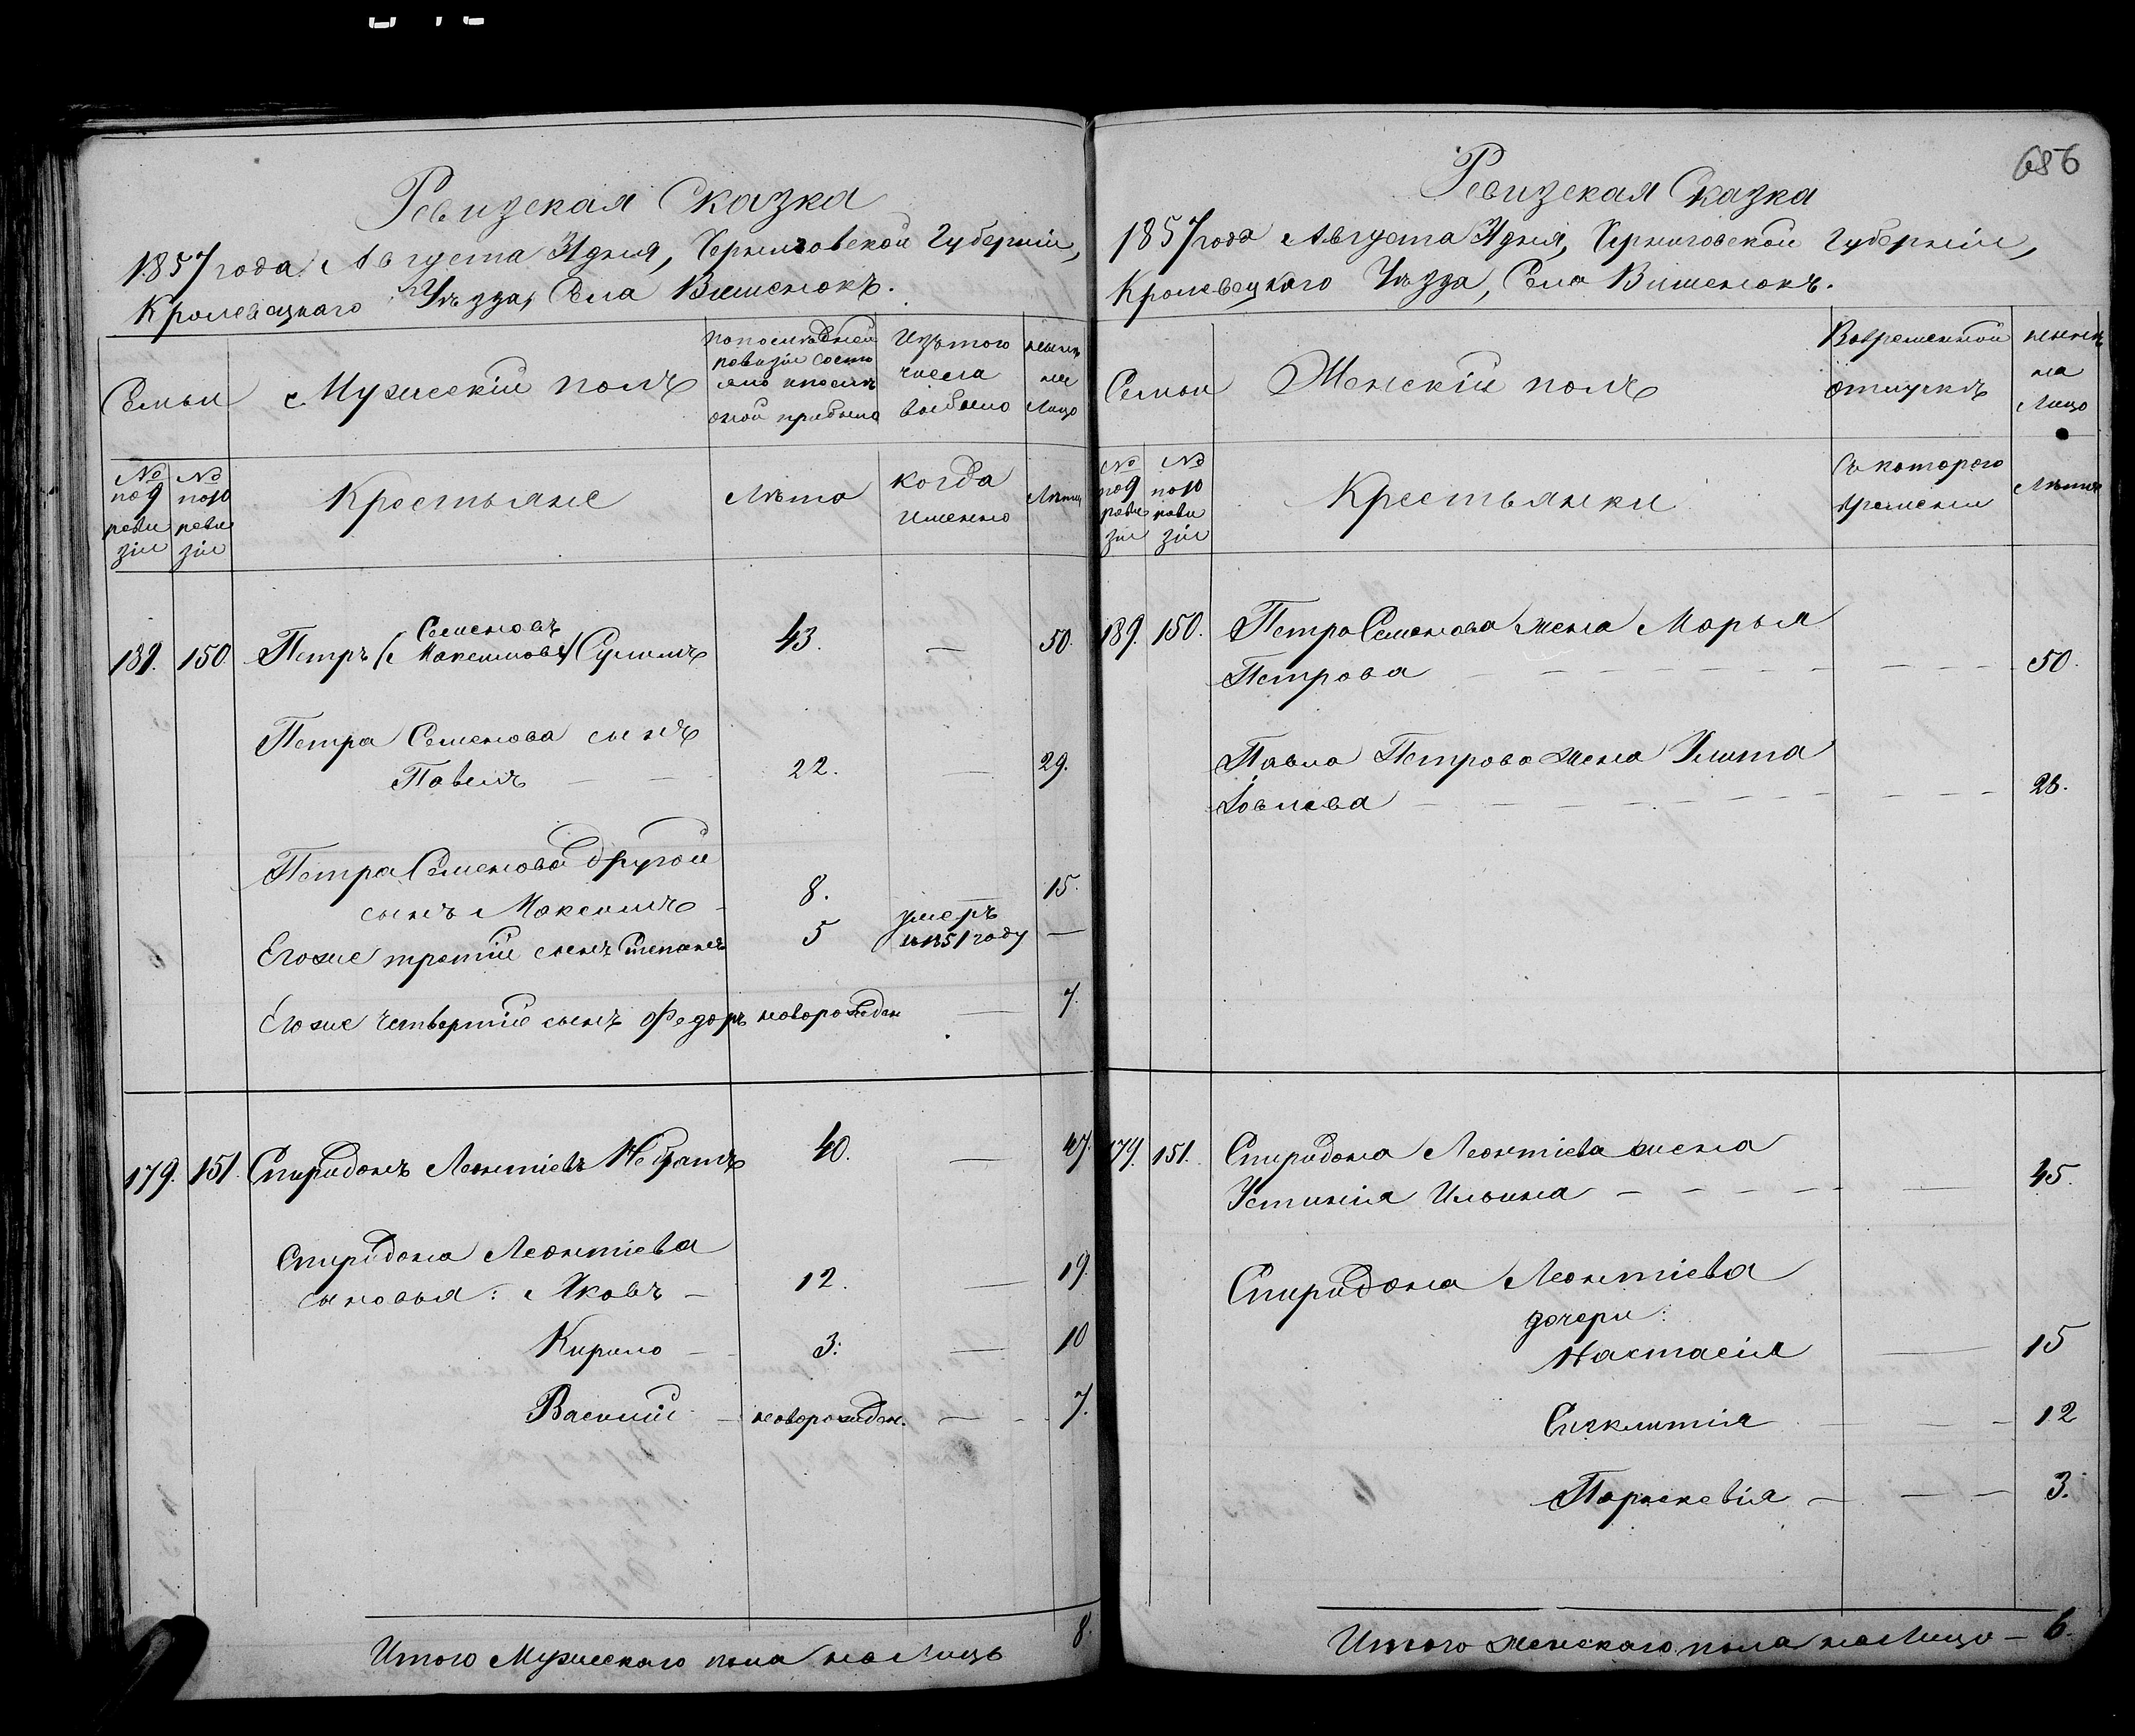 Ревизская Сказка
1857 года Августа дня, Черниговской Губернии,
Кролевецкого Уѣзда, Села Вишенокъ.
Семьи
Мужескій полъ
По последней ревизіи состояло и после оной прибыло
Изъ того числа выбыло
ныне на Лицо
№ по 9 ревизіи
№ по 10 ревизіи
Крестьяне
Лѣта
когда именно
Лѣта
189. 150. Петръ (Семеновъ Максимовъ) 43. — 50.
Петра Семенова сынъ
Павелъ — — 22. — 29.
Петра Семенова другой
сынъ Максимъ — 8. — 15.
Егоже третій сынъ Степанъ 5 умеръ в 1851 году —
Егоже четвертый сынъ Федоръ новорожден — 7.
179. 151. Спиридонъ Леонтіевъ 40. — 47.
Спиридона Леонтіева
сыновья: Яковъ — 12. — 19.
Кирило — 3. — 10
Василий — новорожден. — 7.
Итого Мужескаго пола на Лицо 8.
686
Ревизская Сказка
1857 года Августа дня, Черниговской Губерніи,
Кролевецкаго Уѣзда, Села Вишенокъ.
Семьи
Женскій полъ
Во временной отлучкѣ
ныне на Лицо
№ по 9 ревизіи
№ по 10 ревизіи
Крестьянки
Съ которого времени
Лѣта
189. 150. Петра Семенова жена Марья
Петрова — 50.
Павла Петрова жена Улита
Іовлева — 28.
179. 151. Спиридона Леонтіева жена
Устинія Ильина — 45.
Спиридона Леонтіева
дочери:
Настасія — 15
Синклитія — 12
Параскевія — 3.
Итого женскаго пола на Лицо — 6.